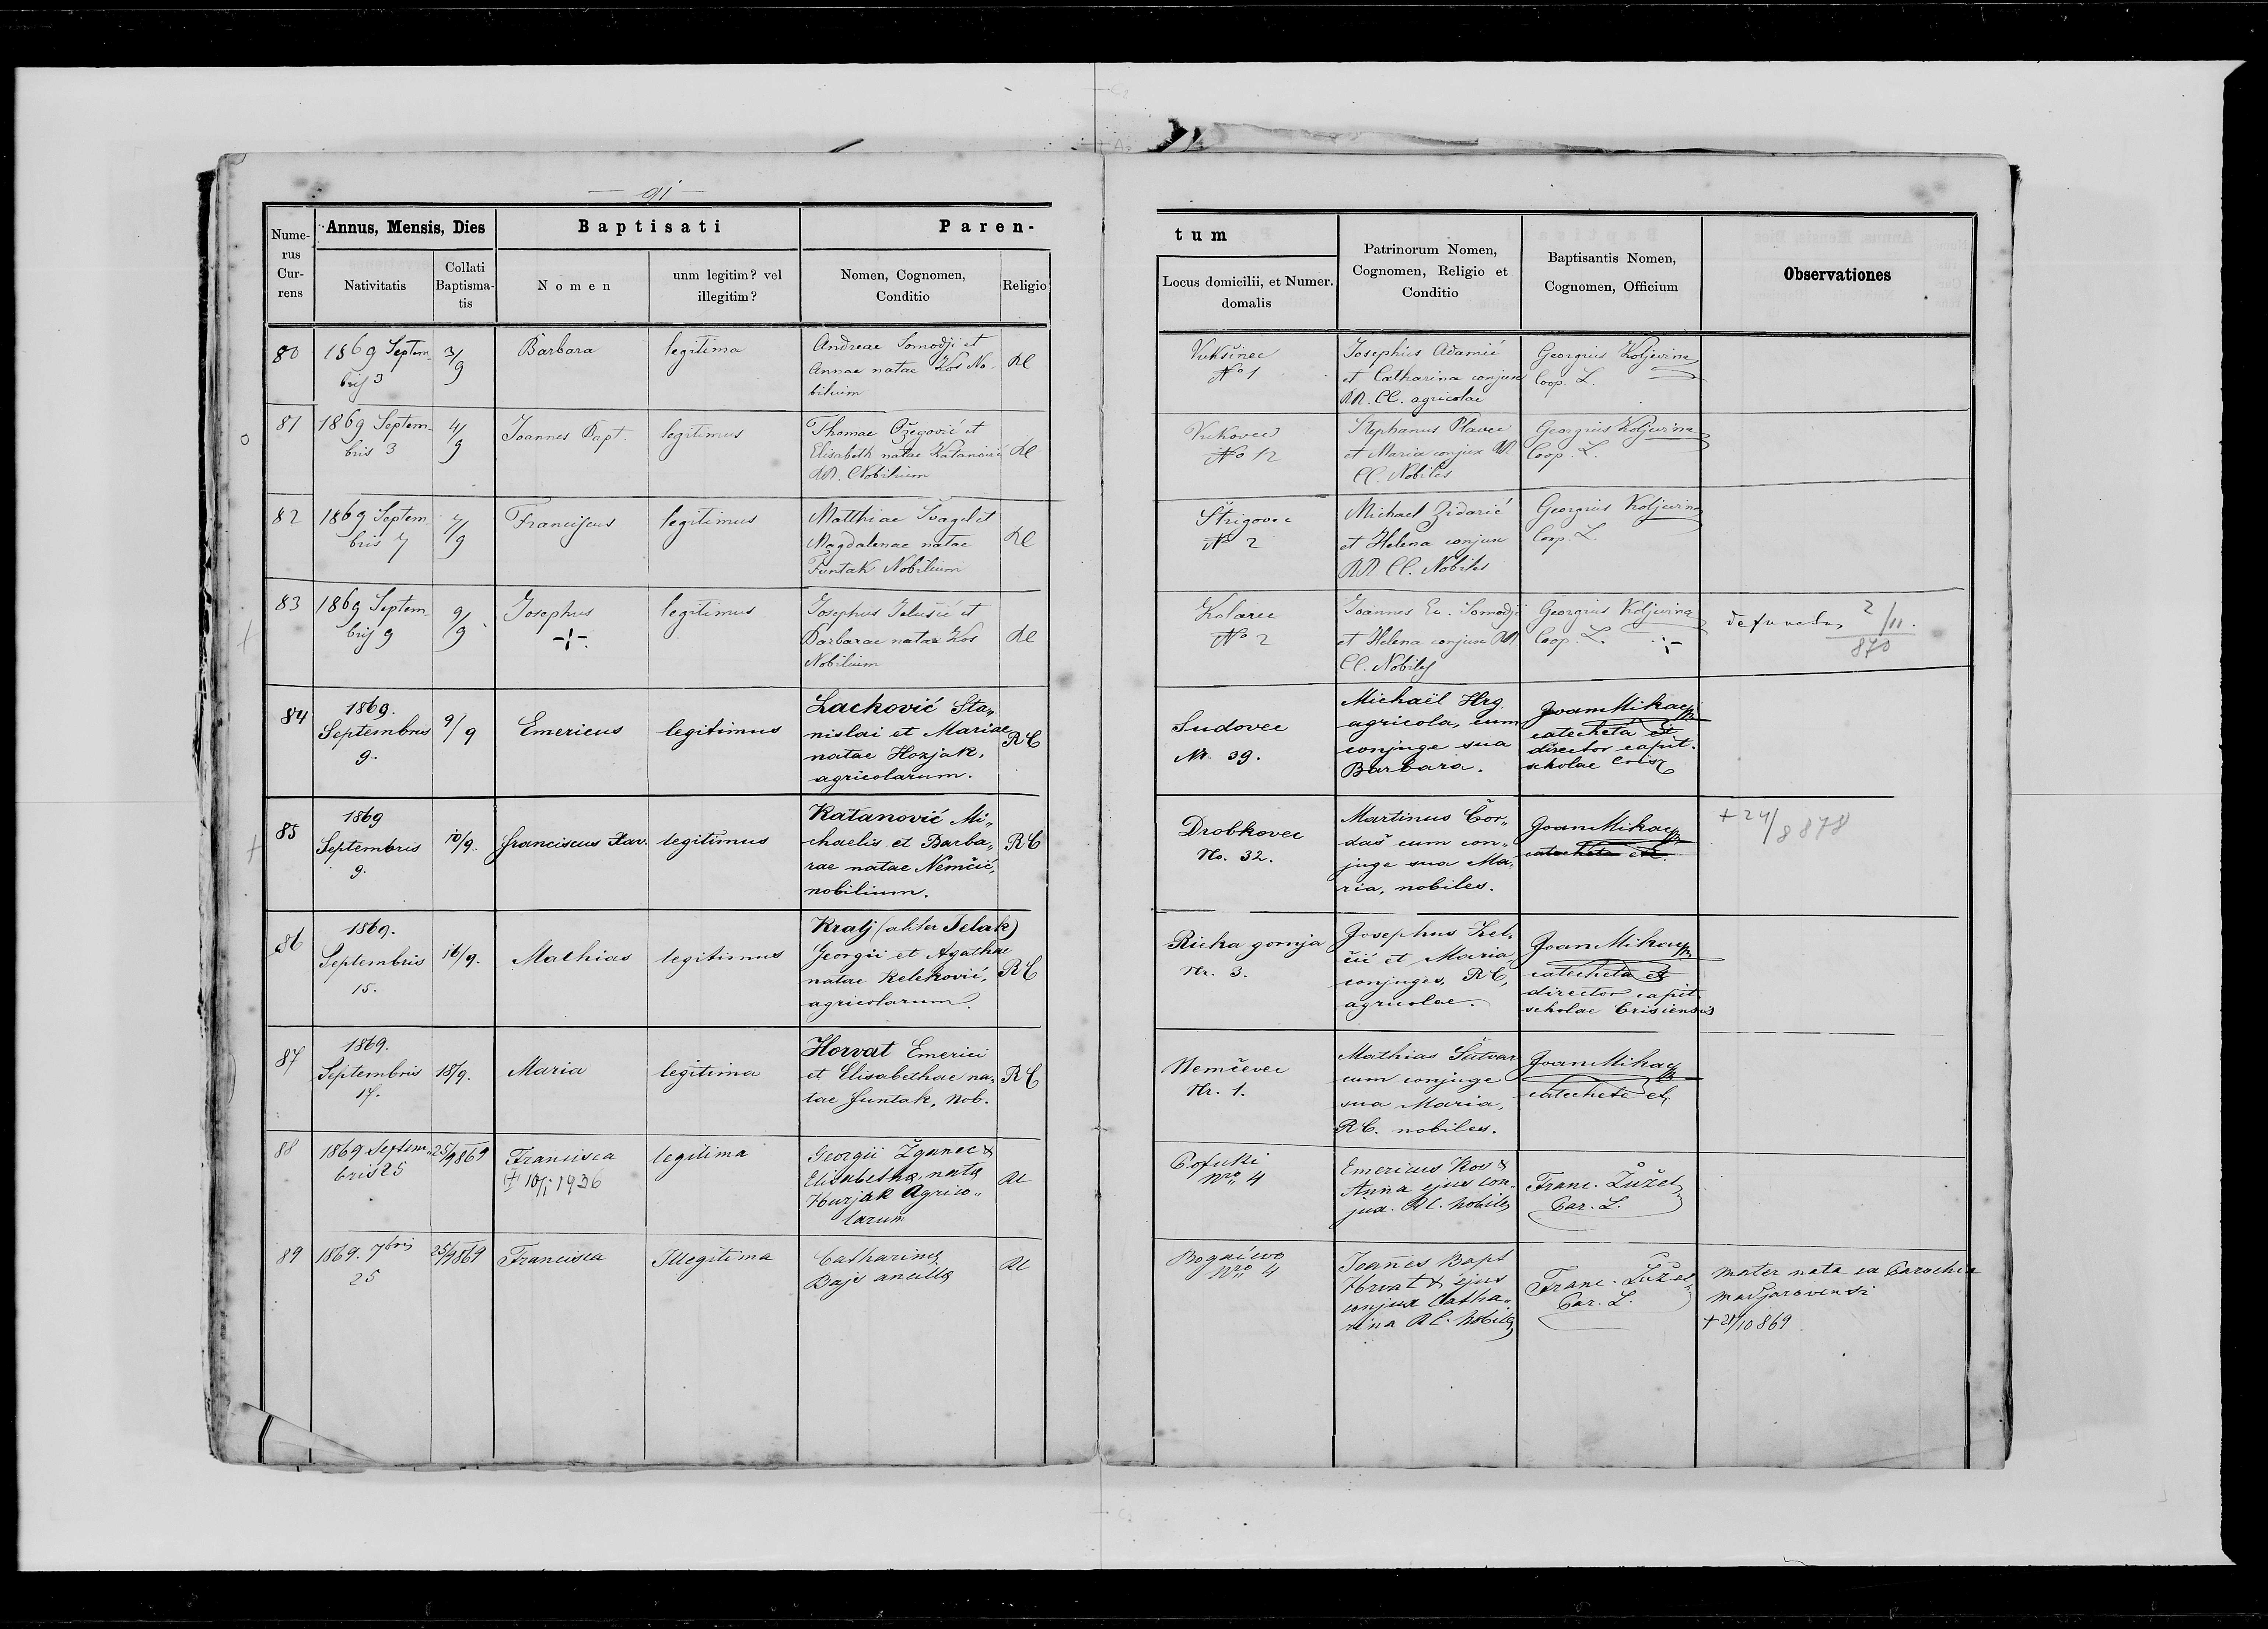 91
Nume-
rus
Cur-
rens
Annus, Mensis, Dies
Nativitatis
Collati
Baptisma-
tis
Baptisati
Nomen
unm legitim? vel
illegitim?
Paren-
Nomen, Cognomen,
Conditio
Religio
tum
Locus domicilii, et Numer.
domalis
Patrinorum Nomen,
Cognomen, Religio et
Conditio
Baptisantis Nomen,
Cognomen, Officium
Observationes
80
1869 Septem
bris 3
3/9
Barbara
legitima
Andreae Somodji et
Annae natae Kos No-
bilium
RC
Vukšinec
No 1
Josephus Adamić
et Catharina conjux
RR. CC. agricolae
Georgius Koljevina
Coop. L.
81
1869 Septem-
bris 3
4/9
Joannes Bapt.
legitimus
Thomae Ožegović et
Elisabeth natae Katanović
RR. CNobilium
RC
Vukovec
No 12
Stephanus Plavec
et Maria conjux RR.
CC. Nobiles
Georgius Koljevina
Coop. L.
82
1869 Septem
bris 7
7/9
Franciscus
legitimus
Matthiae Švagel et
Magdalenae natae
Funtak Nobilium
RC
Štrigovec
No 2
Michael Zidarić
et Helena conjux
RR. CC. Nobiles
Georgius Koljevina
Coop. L.
83
1869 Septem-
bris 9
9/9
Josephus
legitimus
Josephus Jelušić et
Barbarae natae Kos
Nobilium
RC
Kolarec
No 2
Joannes Ev. Somodji
et Helena conjux RR
CC. Nobiles
Georgius Koljevina
Coop. L.
defunctus 2/11.
870
84
1869.
Septembris
9.
9/9
Emericus
legitimus
Lacković Sta„
nislai et Mariae
natae Hozjak,
agricolarum.
RC
Sudovec
Nr. 39.
Michaël Hrg
agricola, cum
conjuge sua
Barbara.
Joan Mikac
catecheta et
director capit.
scholae
85
1869
Septembris
9.
10/9.
Franciscus Xav.
legitimus
Katanović Mi„
chaelis et Barba„
rae natae Nemčić,
nobilium.
RC
Drobkovec
No. 32.
Martinus Čor„
daš cum con„
juge sua Ma„
ria, nobiles.
Joan Mikac
catecheta etc.
+ 24/8 878
86
1869.
Septembris
15.
16/9.
Mathias
legitimus
Kralj (aliter Jelak)
Georgii et Agathae
natae Keleković,
agricolarum.
RC
Rieka gornja
Nr. 3.
Josephus Kel„
čić et Maria,
conjuges, RC,
agricolae.
Joan Mikac
catecheta et
director capit.
scholae Crisiensis
87
1869.
Septembris
17.
18/9.
Maria
legitima
Horvat Emerici
et Elisabethae na„
tae Funtak, Nob.
RC
Nemčevec
Nr. 1.
Mathias Šatvar
cum conjuge
sua Maria,
RC. nobiles.
Joan Mikac
catecheta et
88
1869 Septem„
bris 25
25/9869
Francisca
+ 10/I 1936
legitima
Georgii Žganec &
Elisabetha, nata
Hurjak Agrico„
larum
RC
Pofuki
Nro 4
Emericus Kos &
Anna ejus con„
jux. RC. Nobiles
Franc. Žužel
Par. L.
89
1869. 7bris
25
25/9869
Francisca
Illegitima
Catharina
Bajs ancilla
RC
Bogačevo
Nro 4
Joannes Bapt
Hrvat & ejus
conjux Catha„
rina RC. Nobiles
Franc. Žužel
Par. L.
Mater nata ex Parochia
Madjarovensi
+ 21/10 869